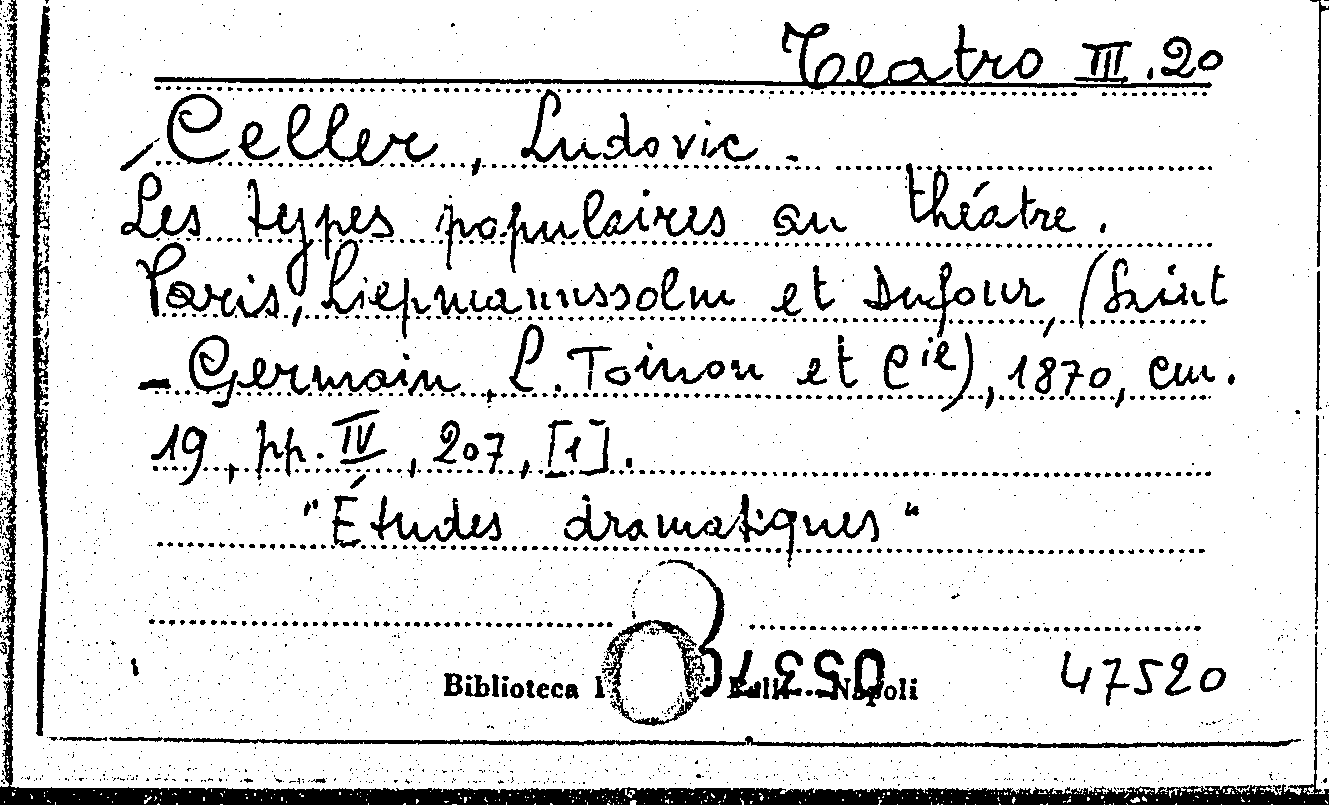 Teatro III.20
Celler, Ludovic.
Les types populaires au théatre.
Paris, Liepmannssohn et Dufour, (Saint
-Germain, L. Toinon et Cie), 1870, cm.
19, pp. IV, 207, [1].
"Études dramatiques"
Biblioteca Napoli
47520